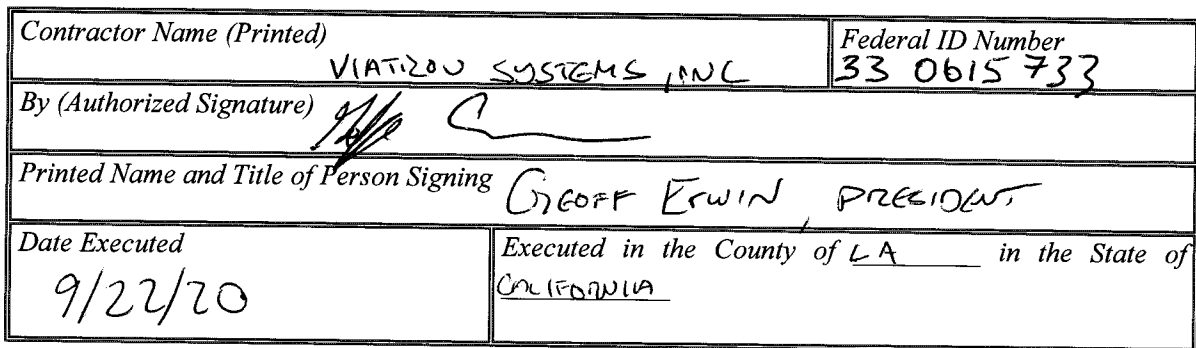 Contractor Name (Printed)
VIATRON SYSTEMS, INC
Federal ID Number
33 0615733
By (Authorized Signature)
Printed Name and Title of Person Signing GEOFF ERWIN, PRESIDENT
Date Executed
9/22/20
Executed in the County of LA in the State of
CALIFORNIA